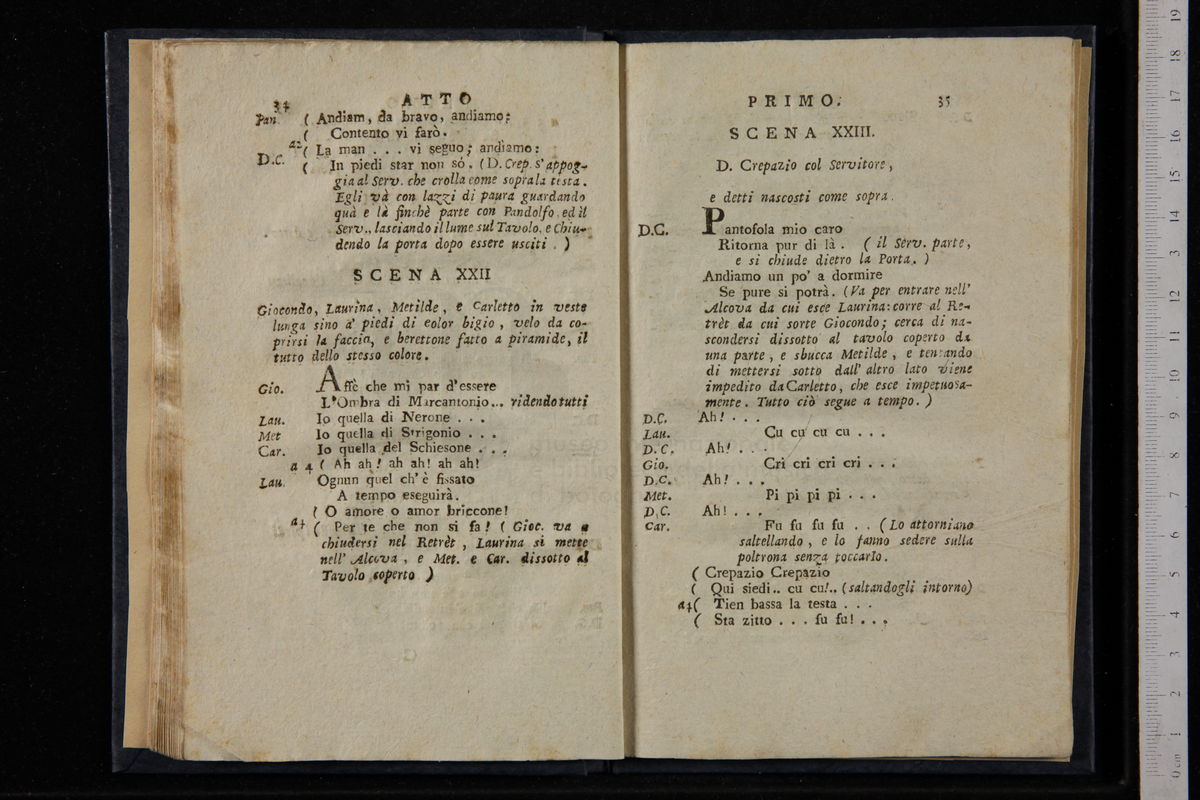 34
ATTO
Pan. ( Andiam, da bravo, andiamo;
( Contento vi farò.
a2 ( La man . . . vi seguo; andiamo:
D.C. ( In piedi star non sò. (D. Crep. s'appog-
gia al Serv. che crolla come sopra la testa.
Egli và con lazzi di paura guardando
quà e là finchè parte con Pandolfo, ed il
Serv., lasciando il lume sul Tavolo, e Chiu-
dendo la porta dopo essere usciti. )
SCENA XXII
Giocondo, Laurina, Metilde, e Carletto in veste
lunga sino a' piedi di color bigio, velo da co-
prirsi la faccia, e berettone fatto a piramide, il
tutto dello stesso colore.
Gio. Affè che mi par d'essere
L'Ombra di Marcantonio... ridendo tutti
Lau. Io quella di Nerone . . .
Met Io quella di Strigonio . . .
Car. Io quella del Schiesone . . .
a 4 ( Ah ah! ah ah! ah ah!
Lau. Ognun quel ch'è fissato
A tempo eseguirà.
( O amore o amor briccone!
a4 ( Per te che non si fa! ( Gioc. va a
chiudersi nel Retrèt, Laurina si mette
nell' Alcova, e Met. e Car. dissotto al
Tavolo coperto )
PRIMO.
35
SCENA XXIII.
D. Crepazio col Servitore,
e detti nascosti come sopra.
D.C. Pantofola mio caro
Ritorna pur di là. ( il Serv. parte,
e si chiude dietro la Porta. )
Andiamo un po' a dormire
Se pure si potrà. (Va per entrare nell'
Alcova da cui esce Laurina: corre al Re-
trèt da cui sorte Giocondo; cerca di na-
scondersi dissotto al tavolo coperto da
una parte, e sbucca Metilde, e tentando
di mettersi sotto dall' altro lato viene
impedito da Carletto, che esce impetuosa-
mente. Tutto ciò segue a tempo. )
D.C. Ah! . . .
Lau. Cu cu cu cu . . .
D.C. Ah! . . .
Gio. Cri cri cri cri . . .
D.C. Ah! . . .
Met. Pi pi pi pi . . .
D.C. Ah! . . .
Car. Fu fu fu fu . . (Lo attorniano
saltellando, e lo fanno sedere sulla
poltrona senza toccarlo.
( Crepazio Crepazio
( Qui siedi.. cu cu!.. (saltandogli intorno)
a4 ( Tien bassa la testa . . .
( Sta zitto . . . fu fu! . . .
0 cm 1 2 3 4 5 6 7 8 9 10 11 12 13 14 15 16 17 18 19